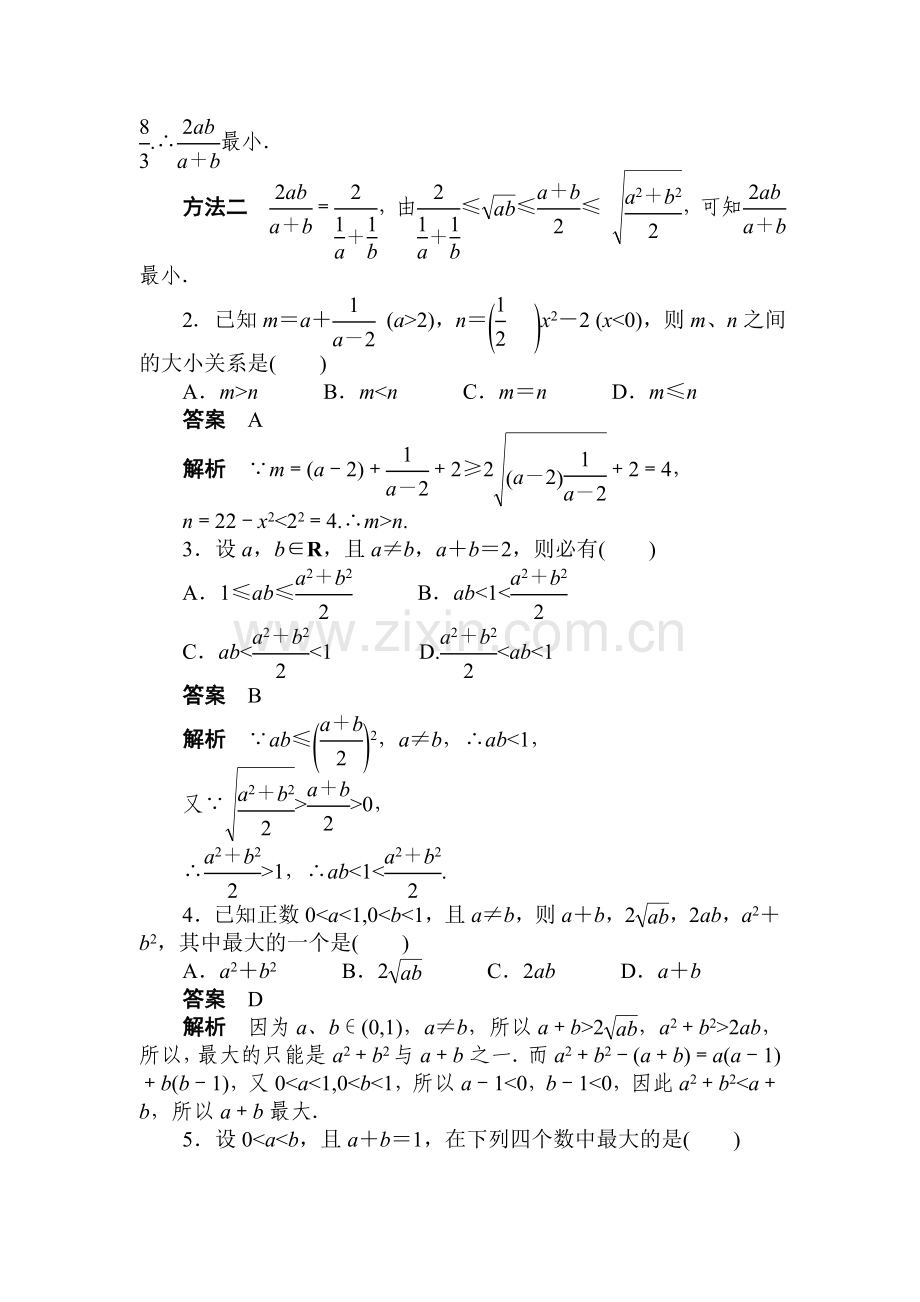 8/3.∴2ab/(a+b)最小.
方法二 2ab/(a+b)=2/(1/a+1/b)，由2/(1/a+1/b)≤√(ab)≤(a+b)/2≤ √((a²+b²)/2)，可知2ab/(a+b)
最小.
2. 已知m=a+1/(a-2) (a>2)，n=(1/2)x2-2 (x<0)，则m、n之间
的大小关系是(  )
A．m>n B．m<n C．m=n D．m≤n
答案 A
解析 ∵m=(a-2)+1/(a-2)+2≥2√((a-2)1/(a-2))+2=4，
n=22-x2<22=4.∴m>n.
3．设a，b∈R，且a≠b，a+b=2，则必有(  )
A．1≤ab≤(a²+b²)/2 B．ab<1<(a²+b²)/2
C．ab<(a²+b²)/2<1 D.(a²+b²)/2<ab<1
www.zixin.com.cn
答案 B
解析 ∵ab≤((a+b)/2)²，a≠b，∴ab<1，
又∵√((a²+b²)/2)>(a+b)/2>0，
∴(a²+b²)/2>1，∴ab<1<(a²+b²)/2.
4．已知正数0<a<1,0<b<1，且a≠b，则a+b，2√(ab)，2ab，a²+
b²，其中最大的一个是(  )
A．a²+b² B．2√(ab) C．2ab D．a+b
答案 D
解析 因为a、b∈(0,1)，a≠b，所以a+b>2√(ab)，a²+b²>2ab，
所以，最大的只能是a²+b²与a+b之一．而a²+b²-(a+b)=a(a-1)
+b(b-1)，又0<a<1,0<b<1，所以a-1<0，b-1<0，因此a²+b²<a+
b，所以a+b最大．
5．设0<a<b，且a+b=1，在下列四个数中最大的是(  )